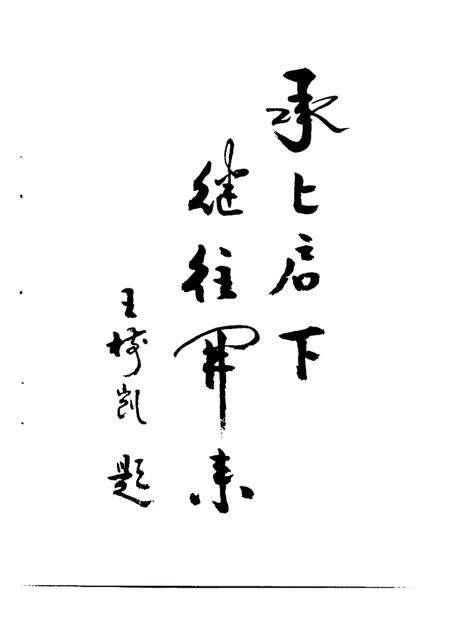 承上启下
继往開来
王 凯 题